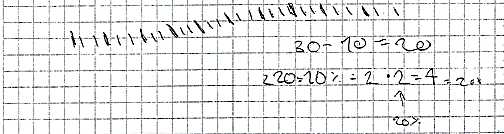 30-10=20
220=10% = 2 · 2 = 4 = 20%
20%